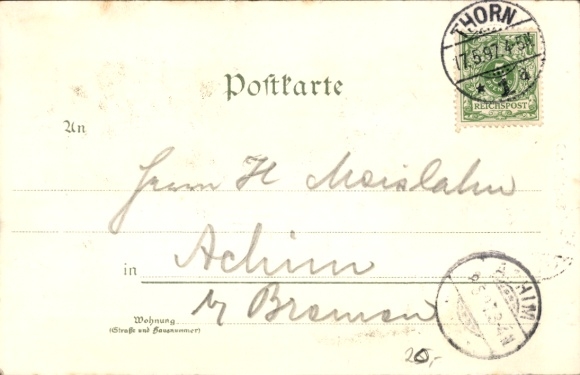 THORN
17.5.97.4-5N
* 1 a
REICHSPOST
Postkarte
An
Herrn H Meislahn
in Achim
by Bremen
Wohnung
(Straße und Hausnummer)
20,-